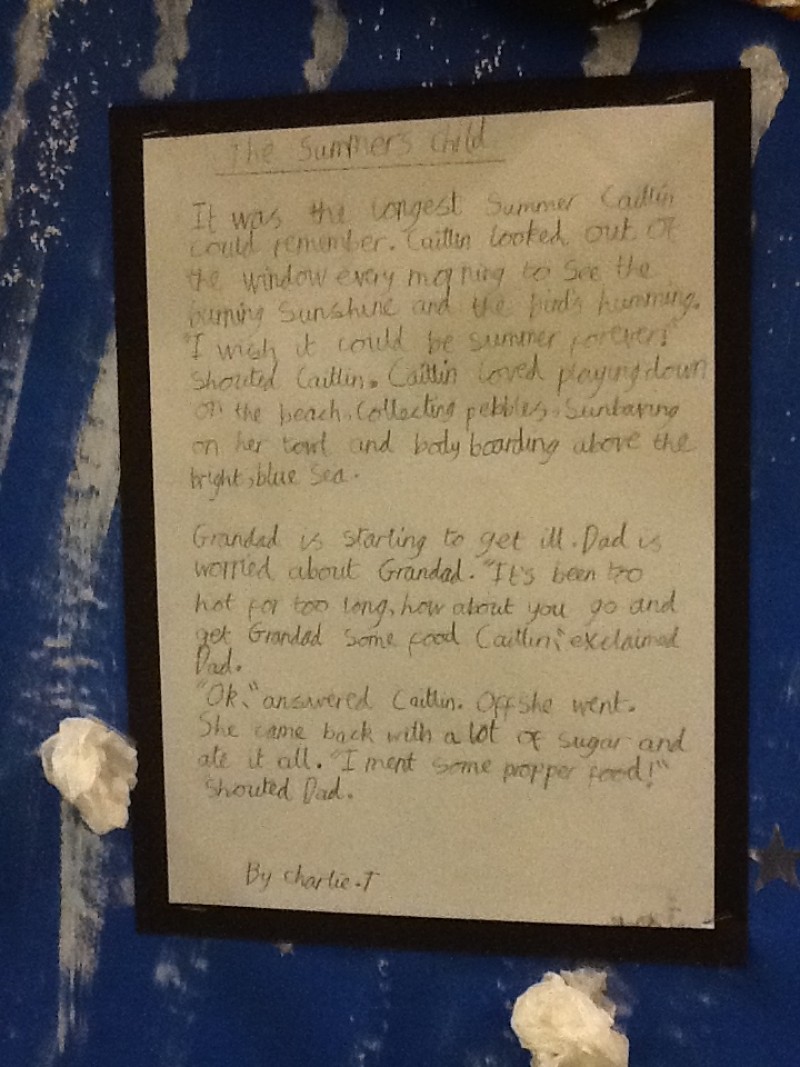 The Summers Child
It was the longest Summer Caitlin
could remember. Caitlin looked out of
the window every morning to See the
burning Sunshine and the birds humming.
"I wish it could be summer forever!"
shouted Caitlin. Caitlin loved playing down
on the beach, Collecting pebbles, Sunbaving
on her towl and body boarding above the
bright, blue Sea.
Grandad is starting to get ill. Dad is
worried about Grandad. "It's been too
hot for too long, how about you go and
get Grandad some food Caitlin," exclaimed
Dad.
"Ok," answered Caitlin. Off she went.
She came back with a lot of sugar and
ate it all. "I ment some propper food!"
shouted Dad.
By Charlie.T